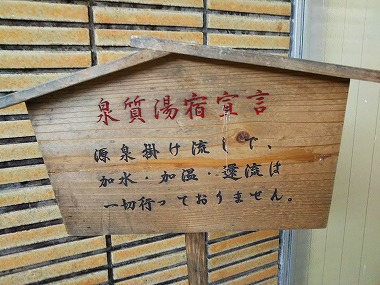 泉質湯宿宣言
源泉掛け流しで、
加水・加温・還流は
一切行っておりません。